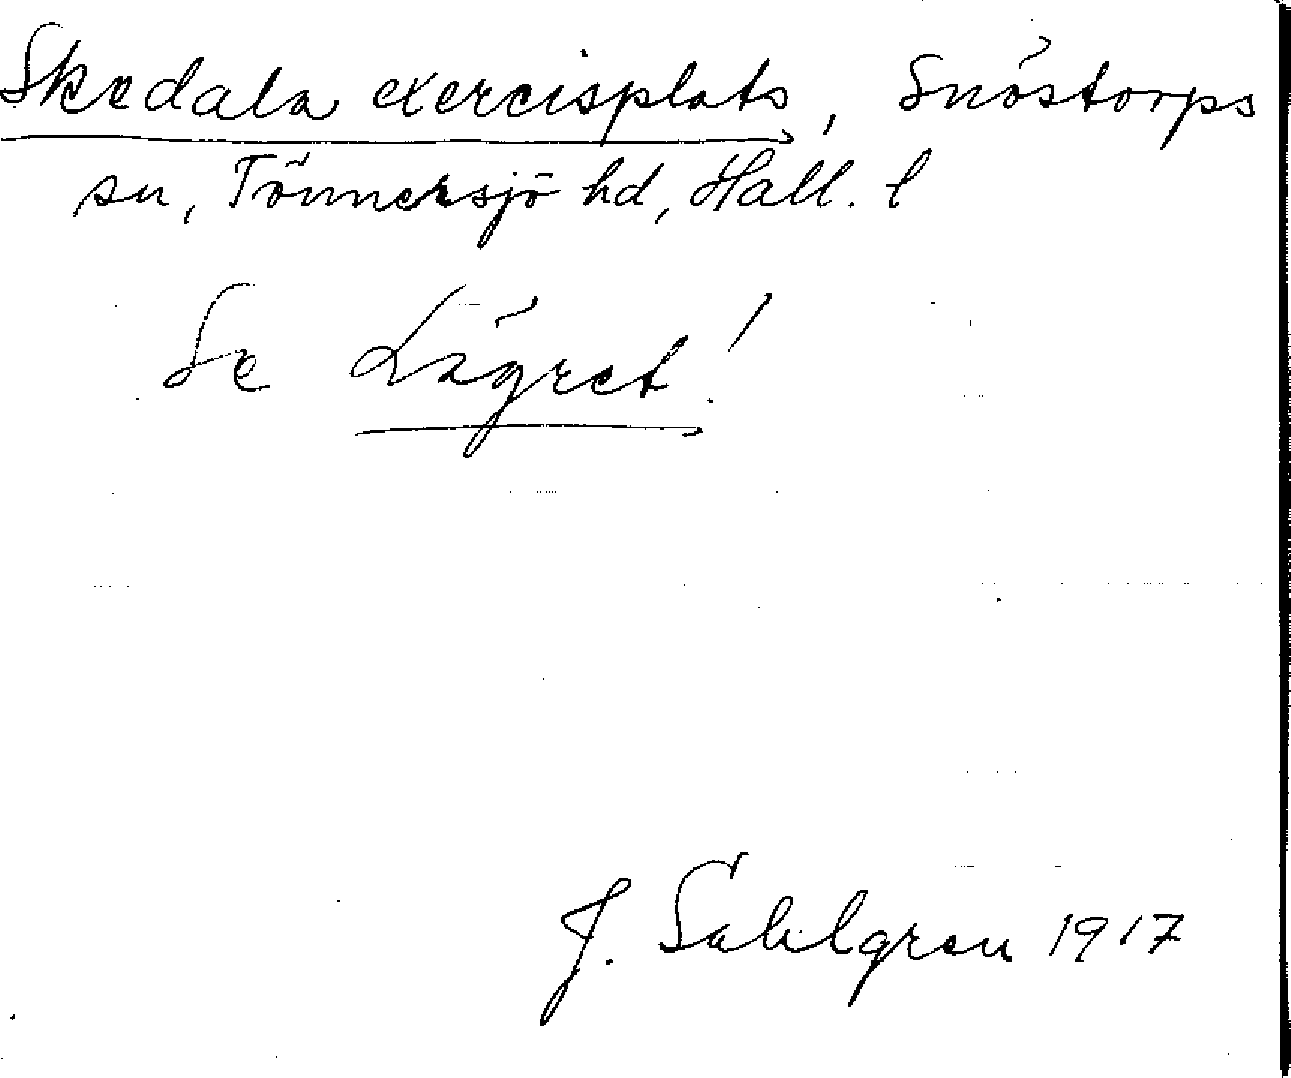 Skedala exercisplats, Snöstorps
sn, Tönnersjö hd, Hall. l
Se Lägret!
J. Sahlgren 1917